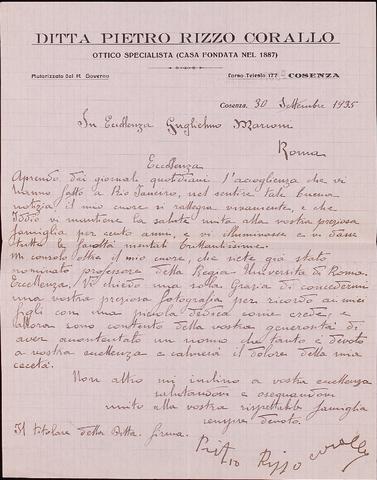 DITTA PIETRO RIZZO CORALLO
OTTICO SPECIALISTA (CASA FONDATA NEL 1887)
Autorizzato dal R. Governo
Corso Telesio 177 - COSENZA
Cosenza, 30 Settembre 1935
In Eccellenza Guglielmo Marconi
Roma
Eccellenza
Aprendo dei giornali quotidiani l'accoglienza che vi
hanno fatto a Rio Janeiro, nel sentire tale buona
notizia il mio cuore si rallegra vivamente, e che
Iddio vi mantiene la salute unita alla vostra preziosa
famiglia per cento anni, e vi illuminasse e vi dasse
tutte le facoltà mentali brillantissime.
Mi consolo oltre il mio cuore, che siete già stato
nominato professore della Regia Università di Roma.
Eccellenza, Vi chiedo una sola Grazia di concedermi
una vostra preziosa fotografia per ricordo ai miei
figli con una piccola dedica come credete, e
allora sono contento della vostra generosità di
aver accontentato un uomo che tanto è devoto
a vostra eccellenza e calmerà il dolore della mia
cecità.
Non altro mi inchino a vostra eccellenza
salutandovi e ossequiandovi
unito alla vostra rispettabile famiglia
sempre devoto.
Il titolare della Ditta. firma.
Pietro Rizzo Corallo